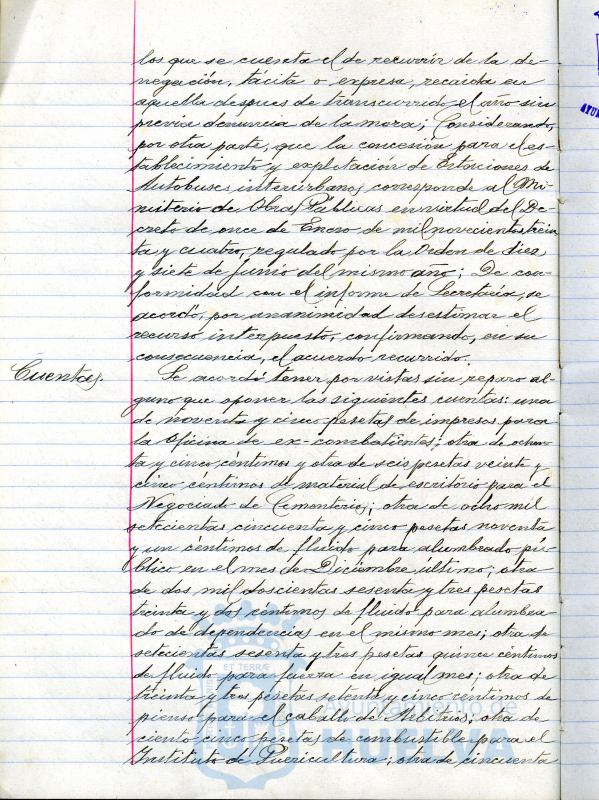 los que se cuenta el de recurrir de la de-
negación, tácita o expresa, recaida en
aquella despues de transcurrido el año sin
previa denuncia de la mora; Considerando,
por otra parte, que la concesión para el es-
tablecimiento y explotación de Estaciones de
Autobuses interurbanos corresponde al Mi-
nisterio de Obras Públicas en virtud del De-
creto de once de Enero de mil novecientos trein
ta y cuatro, regulado por la Orden de diez
y siete de junio del mismo año; De con-
formidad con el informe de Secretaría, se
acordó, por unanimidad desestimar el
recurso interpuesto, confirmando, en su
consecuencia, el acuerdo recurrido.
Cuentas. Se acordó tener por vistas sin reparo al-
guno que oponer las siguientes cuentas: una
de noventa y cinco pesetas de impresos para
la Oficina de ex-combatientes; otra de ochen
ta y cinco céntimos y otra de seis pesetas veinte y
cinco céntimos de material de escritorio para el
Negociado de Cementerios; otra de ocho mil
setecientas cincuenta y cinco pesetas noventa
y un céntimos de flúido para alumbrado pú-
blico en el mes de Diciembre último; otra
de dos mil doscientas sesenta y tres pesetas
treinta y dos céntimos de flúido para alumbra-
do de dependencias en el mismo mes; otra de
setecientas sesenta y tres pesetas quince céntimos
de flúido para fuerza en igual mes; otra de
treinta y tres pesetas setenta y cinco céntimos de
pienso para el caballo de Arbitrios; otra de
ciento cinco pesetas de combustible para el
Instituto de Puericultura; otra de cincuenta
ET TERRÆ
Ayuntamiento de
HUELVA